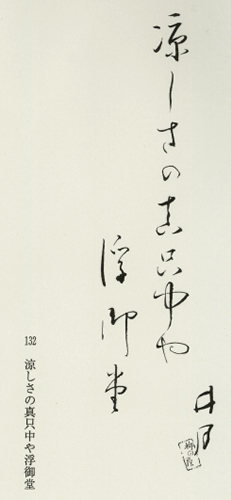 涼しさの真只中や
浮御堂
井月
132 涼しさの真只中や浮御堂